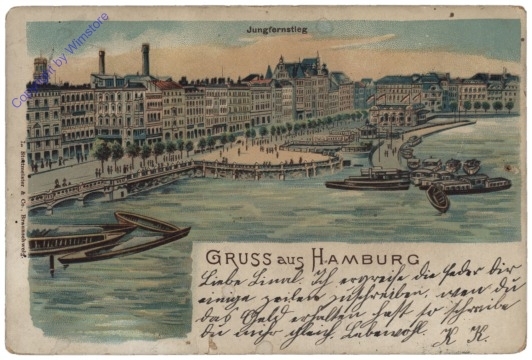 Jungfernstieg
Copyright by Wimstore
& Co., Braunschweig.
GRUSS aus HAMBURG
Liebe Lina! Ich ergreife die Feder dir
einige zeilen zuschreiben, wen du
das Geld erhalten hast so schreibe
du mihr gleich. Lebewohl. K K.